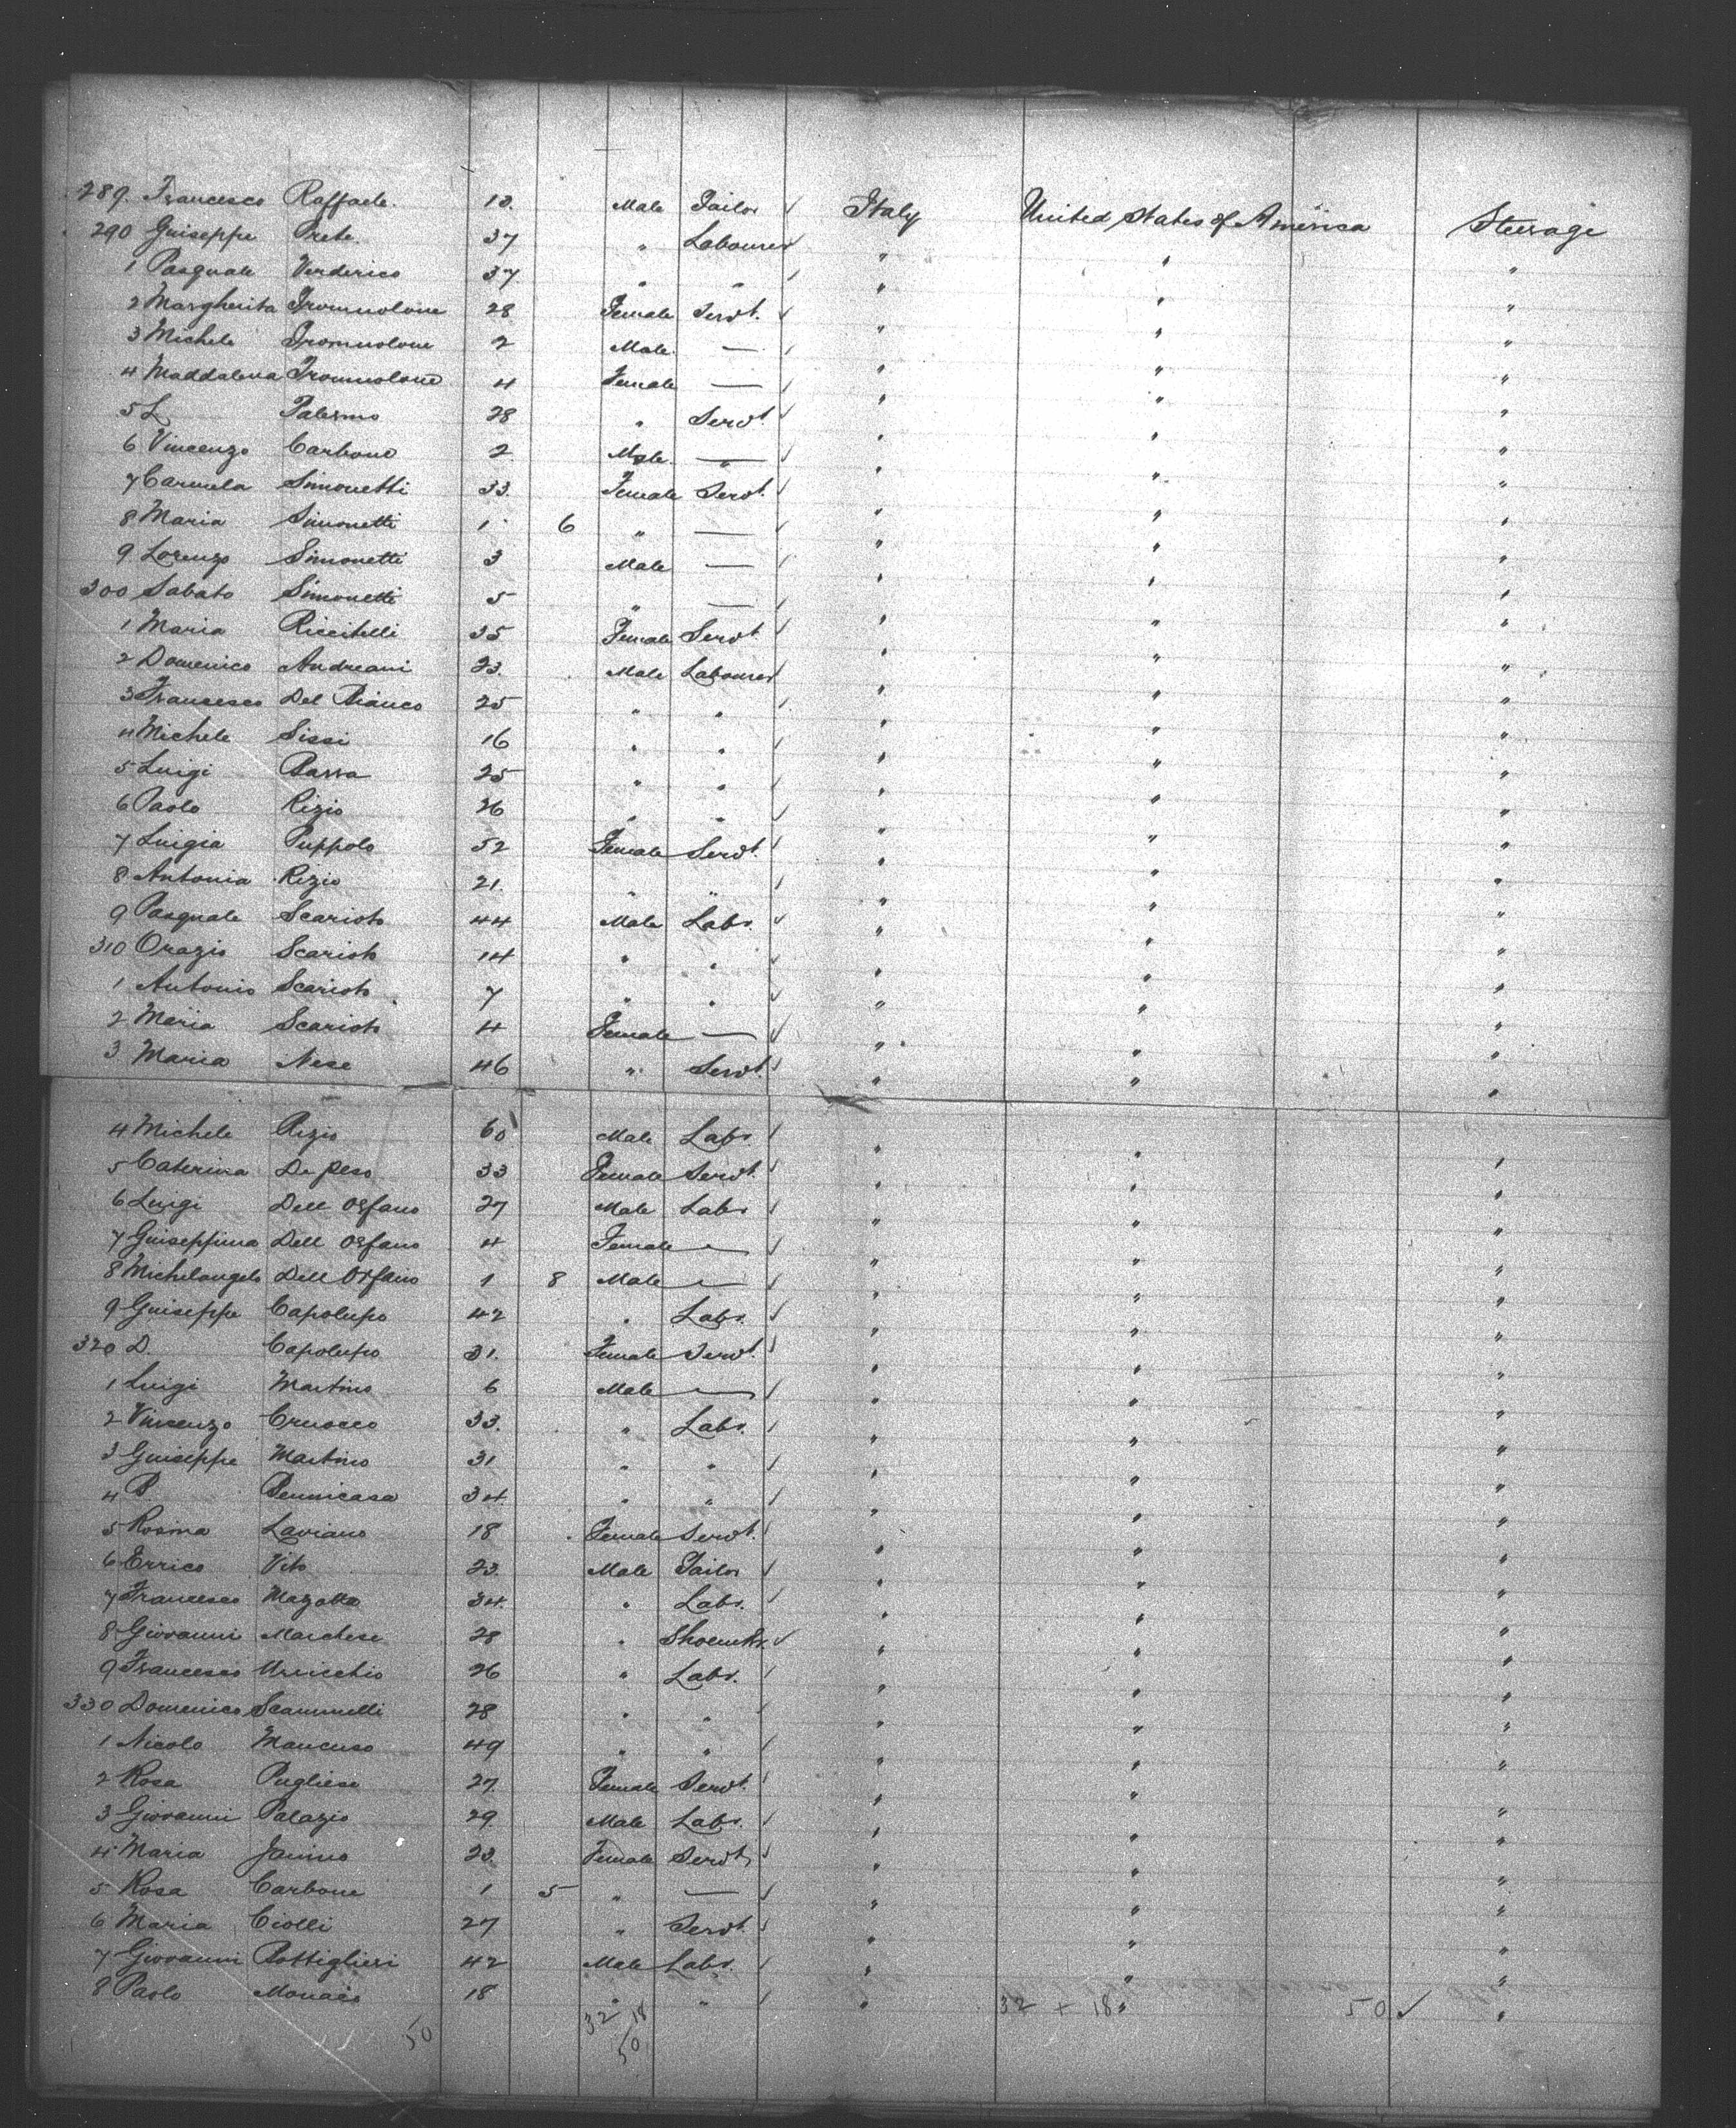 289. Francesco Raffaele. 18. Male Tailor √ Italy United States of America Steerage
290 Guiseppe Prete. 37 " Labourer √ " " "
1 Pasquale Verderico 37 " " √ " " "
2 Margherita Tromuolone 28 Female Servt. √ " " "
3 Michele Tromuolone 2 Male — √ " " "
4 Maddalena Tromuolone 4 Female — √ " " "
5 L Palermo 28 " Servt √ " " "
6 Vincenzo Carbone 2 Male. — √ " " "
7 Carmela Simonetti 33. Female Servt. √ " " "
8 Maria Simonetti 1 6 " — √ " " "
9 Lorenzo Simonetti 3 Male — √ " " "
300 Sabato Simonetti 5 " — √ " " "
1 Maria Riccitelli 35 Female Servt. √ " " "
2 Domenico Andreani 23. Male Labourer " " "
3 Francesco Del Bianco 25 " " √ " " "
4 Michele Sissi 16 " " √ " " "
5 Luigi Barra 25 " " √ " " "
6 Paolo Rizio 26 " " √ " " "
7 Luigia Puppolo 52 Female Servt. √ " " "
8 Antonia Rizio 21. " " √ " " "
9 Pasquale Scarioto 44 Male Labr. √ " " "
310 Orazio Scarioto 14 " " √ " " "
1 Antonio Scarioto 7 " " √ " " "
2 Maria Scarioto 4 Female — √ " " "
3 Maria Nese 46 " Servt. √ " " "
4 Michele Rizio 60 Male Labr √ " " "
5 Caterina De Peso 33 Female Servt. √ " " "
6 Luigi Dell Orfano 27 Male Labr √ " " "
7 Guiseppina Dell Orfano 4 Female — √ " " "
8 Michelangelo Dell Orfano 1 8 Male — √ " " "
9 Guiseppe Capolupo 42 " Labr. √ " " "
320 D. Capolupo 31. Female Servt. √ " " "
1 Luigi Martino 6 Male — √ " " "
2 Vincenzo Cruocco 33. " Labr. √ " " "
3 Guiseppe Martino 31 " " √ " " "
4 P. Pennicasa 34. " " √ " " "
5 Rosina Laviano 18 Female Servt. √ " " "
6 Errico Vito 23. Male Tailor √ " " "
7 Francesco Mazotta 34. " Labr. √ " " "
8 Giovanni Marchese 28 " Shoemkr. √ " " "
9 Francesco Uricchio 26 " Labr. √ " " "
330 Domenico Scammelli 28 " " √ " " "
1 Nicolo Mancuso 49 " " √ " " "
2 Rosa Pugliese 27. Female Servt. √ " " "
3 Giovanni Palazio 29. Male Labr. √ " " "
4 Maria Janino 23. Female Servt √ " " "
5 Rosa Carbone 1 5 " — √ " " "
6 Maria Ciolli 27 " Servt. √ " " "
7 Giovanni Bottiglieri 42 Male Labr. √ " " "
8 Paolo Monaco 18 " " √ " " "
32 + 18 50 √
50 32 18
50